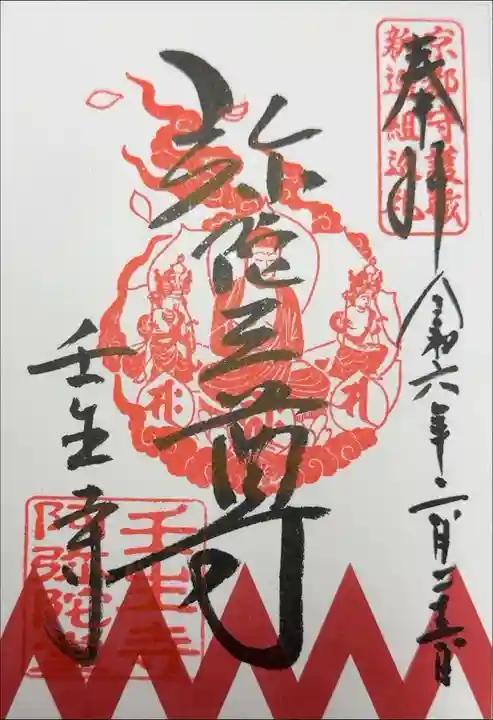 奉拝
京都守護職
新選組遺跡
令和六年二月二十五日
弥陀三尊
壬生寺
壬生寺
阿弥陀堂